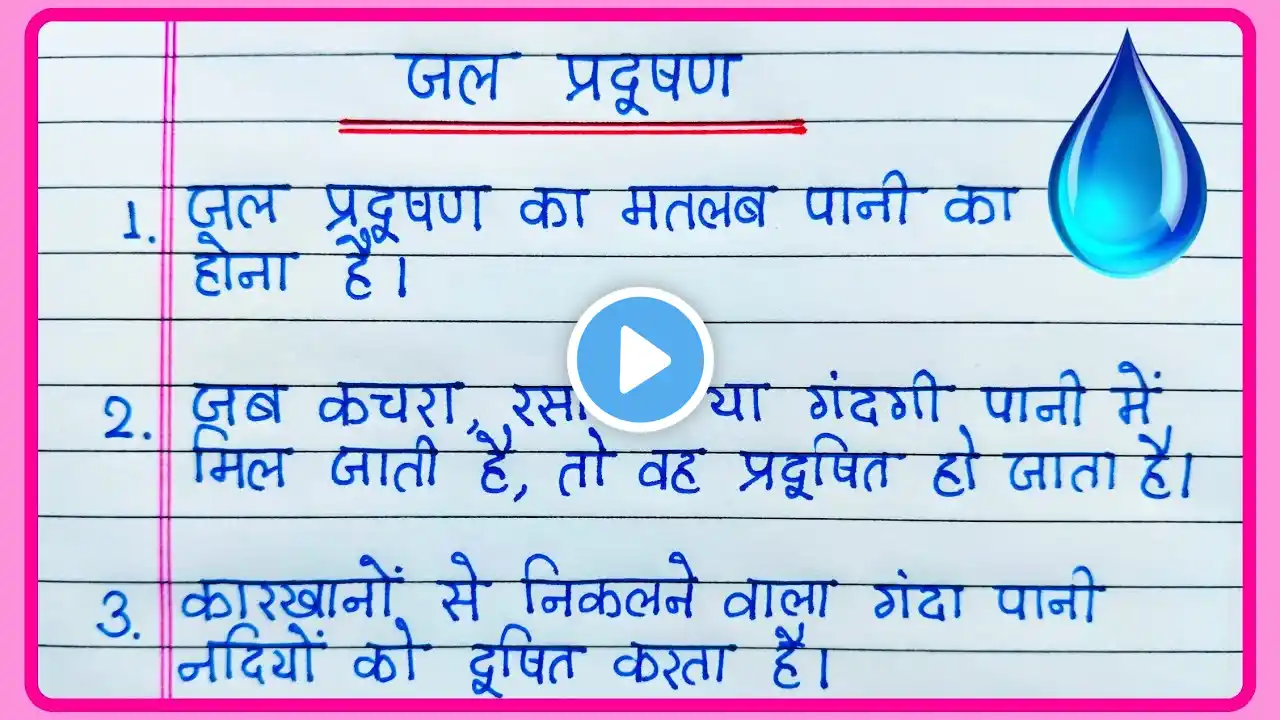 जल प्रदूषण
1. जल प्रदूषण का मतलब पानी का
होना है।
2. जब कचरा, या गंदगी पानी में
मिल जाती है, तो वह प्रदूषित हो जाता है।
3. कारखानों से निकलने वाला गंदा पानी
नदियों को दूषित करता है।